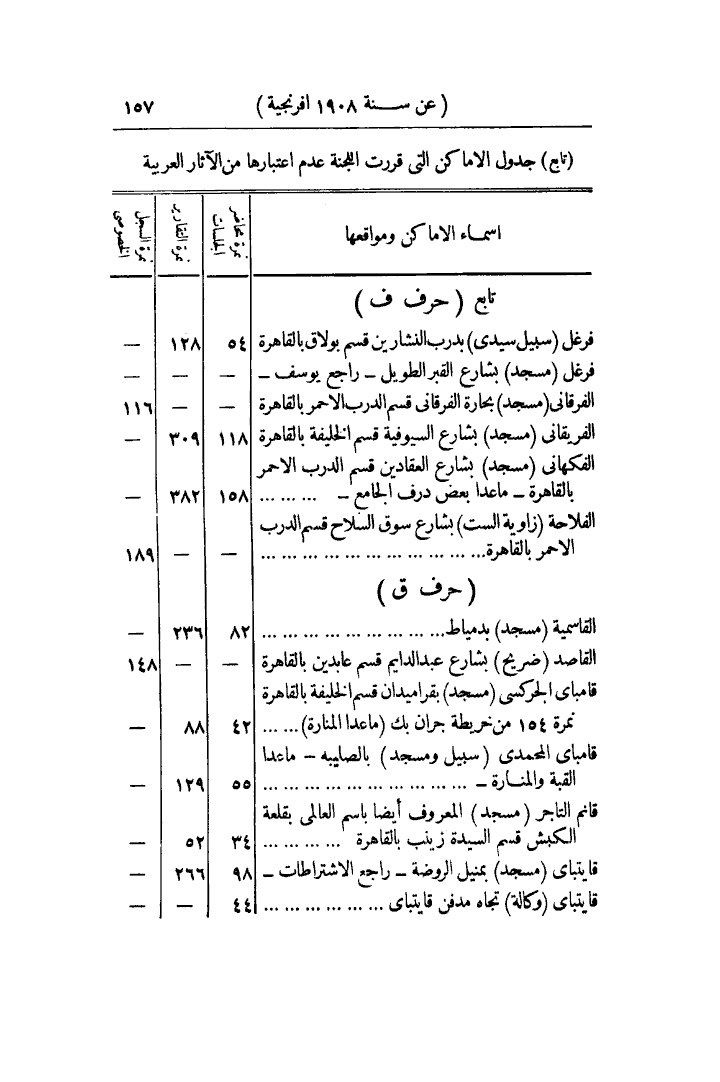 (عن سنة ١٩٠٨ افرنجية) ١٥٧
(تابع) جدول الاماكن التى قررت اللجنة عدم اعتبارها من الآثار العربية
اسماء الاماكن ومواقعها | نمرة محاضر الجلسات | نمرة التقارير | نمرة السجل الخصوصى
تابع (حرف ف)
فرغل (سبيل سيدى) بدرب النشارين قسم بولاق بالقاهرة ٥٤ ١٢٨ —
فرغل (مسجد) بشارع القبر الطويل ــ راجع يوسف ــ — — —
الفرقانى (مسجد) بحارة الفرقانى قسم الدرب الاحمر بالقاهرة — — ١١٦
الفريقانى (مسجد) بشارع السيوفية قسم الخليفة بالقاهرة ١١٨ ٣٠٩ —
الفكهانى (مسجد) بشارع العقادين قسم الدرب الاحمر
بالقاهرة ــ ماعدا بعض درف الجامع ــ ... ... ... ١٥٨ ٣٨٢ —
الفلاحة (زاوية الست) بشارع سوق السلاح قسم الدرب
الاحمر بالقاهرة... ... ... ... ... ... ... ... ... ... ... — — ١٨٩
(حرف ق)
القاسمية (مسجد) بدمياط... ... ... ... ... ... ... ... ... ٨٢ ٢٣٦ —
القاصد (ضريح) بشارع عبدالدايم قسم عابدين بالقاهرة — — ١٤٨
قامباى الجركسى (مسجد) بقراميدان قسم الخليفة بالقاهرة
نمرة ١٥٤ من خريطة جران بك (ماعدا المنارة)... ... ٤٢ ٨٨ —
قامباى المحمدى (سبيل ومسجد) بالصليبه ــ ماعدا
القبة والمنارة ــ ... ... ... ... ... ... ... ... ... ... ٥٥ ١٢٩ —
قانم التاجر (مسجد) المعروف أيضا باسم العالمى بقلعة
الكبش قسم السيدة زينب بالقاهرة ... ... ... ... ٣٤ ٥٢ —
قايتباى (مسجد) بمنيل الروضة ــ راجع الاشتراطات ــ ٩٨ ٢٦٦ —
قايتباى (وكالة) تجاه مدفن قايتباى ... ... ... ... ... ... ٤٤ — —